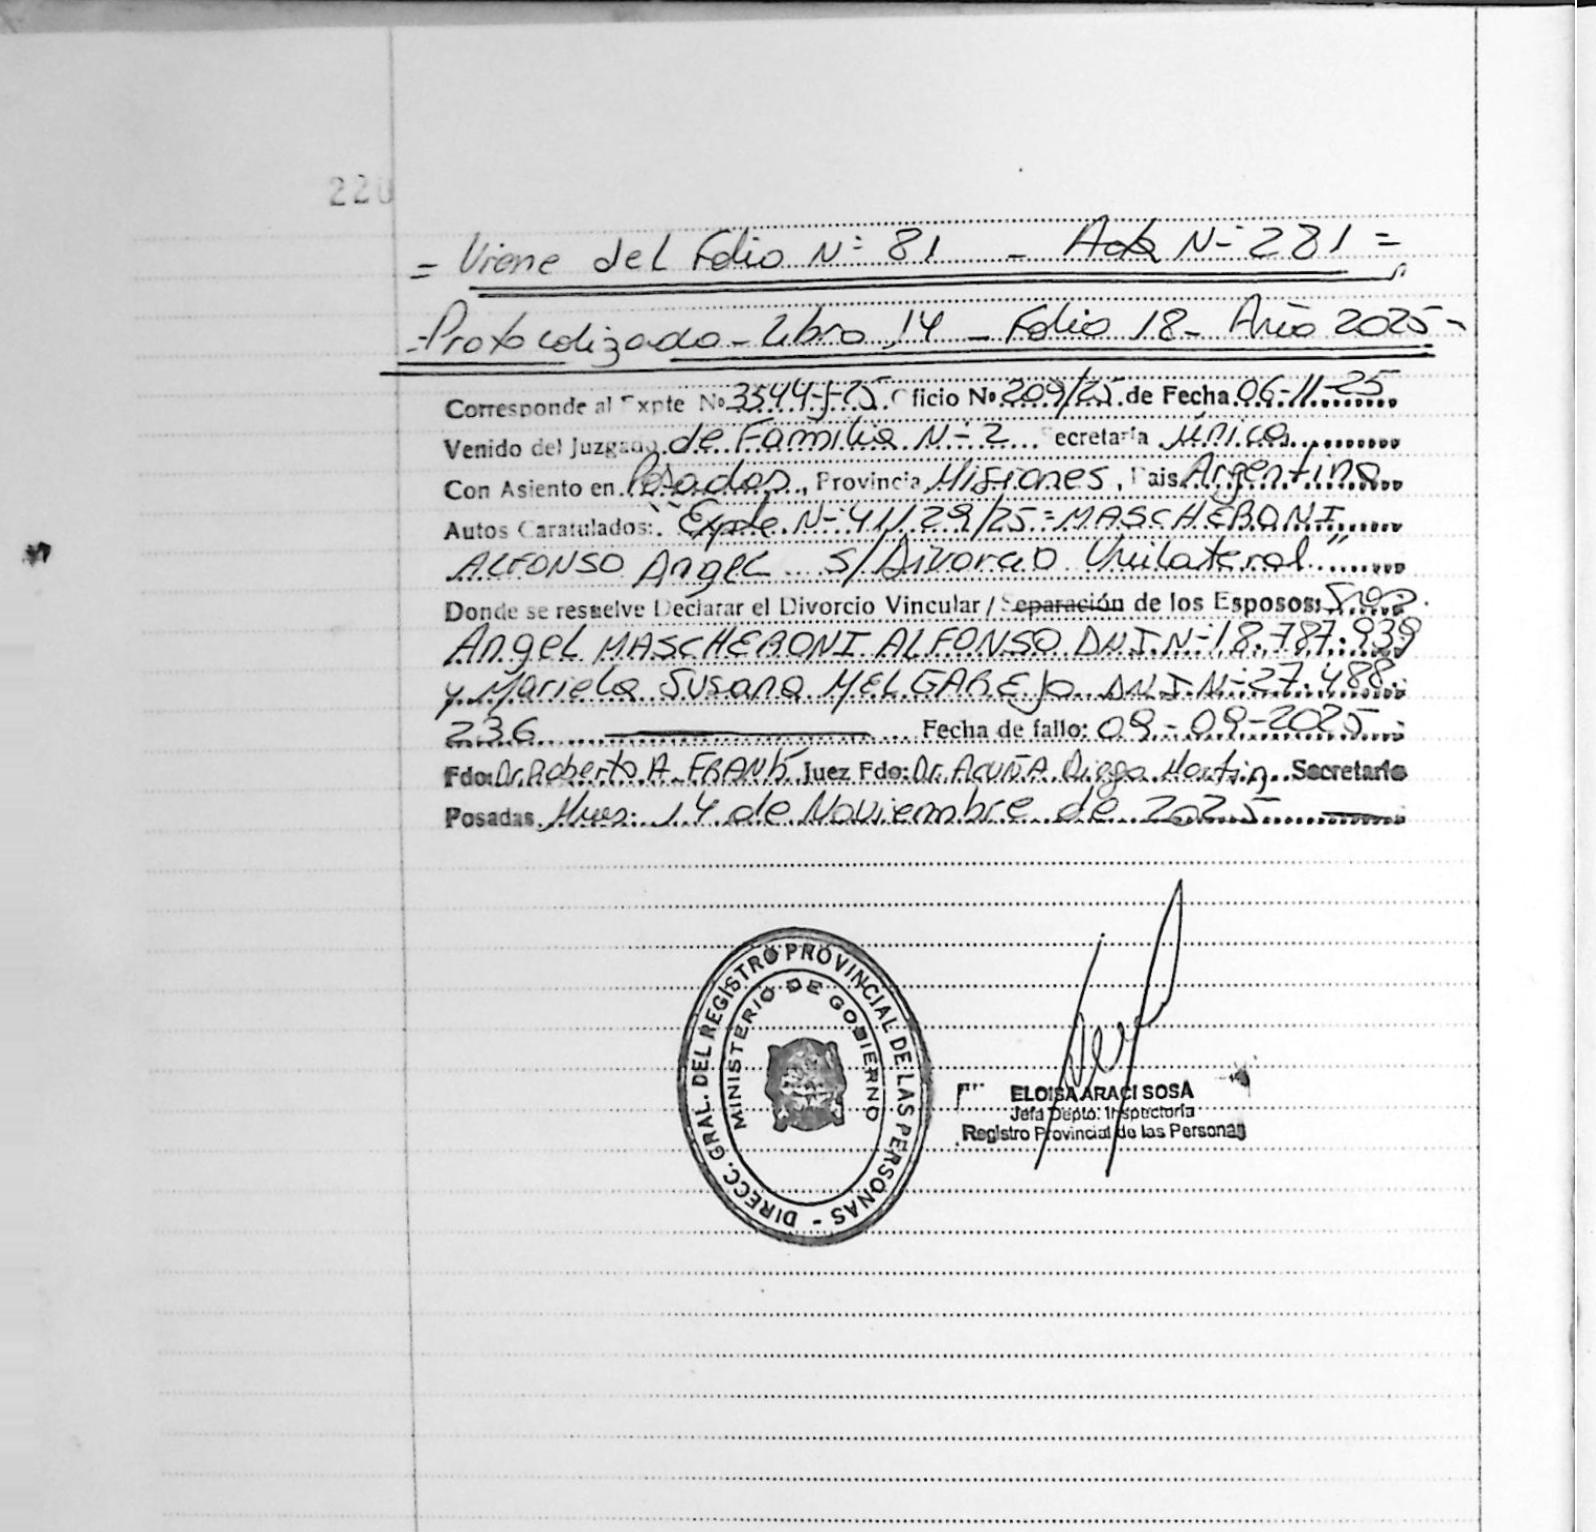 220
= Viene del Folio N: 81 - Acta N: 281 =
- Protocolizado - Libro 14 - Folio 18 - Año 2025 -
Corresponde al Expte Nº 3544-J-25. Oficio Nº 209/25 de Fecha 06-11-25
Venido del Juzgado de Familia N-2 Secretaría Única
Con Asiento en Posadas, Provincia Misiones, Pais Argentina
Autos Caratulados: "Expte N- 41129/25 = MASCHERONI
ALFONSO Angel s/ Divorcio Unilateral"
Donde se resuelve Declarar el Divorcio Vincular / Separación de los Esposos: Sres.
Angel MASCHERONI ALFONSO DNI.N-18.787.939
y Mariela Susana MELGAREJO DNI.N-27.488.
236 Fecha de fallo: 09-09-2025
Fdo: Dr. Roberto A. FRANK Juez Fdo: Dr. ACUÑA Diego Martin Secretario
Posadas Mnes: 14 de Noviembre de 2025
DIRECC. GRAL. DEL REGISTRO PROVINCIAL DE LAS PERSONAS -
MINISTERIO DE GOBIERNO
ELOISA ARACI SOSA
Jefa Depto. Inspectoria
Registro Provincial de las Personas